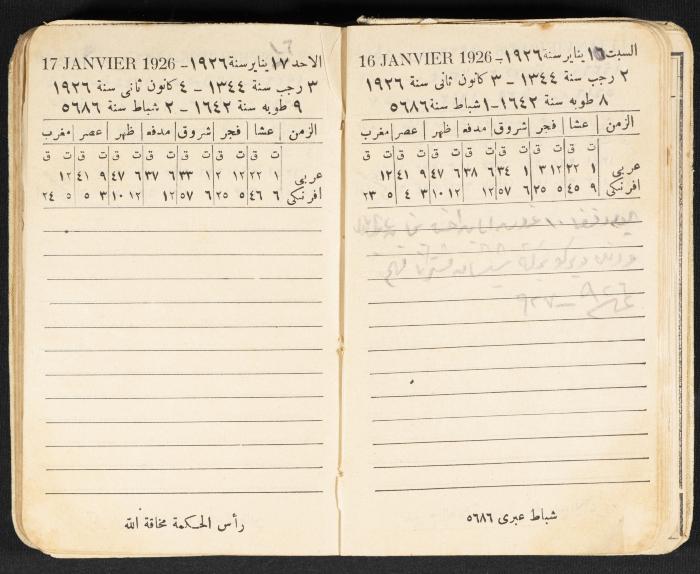 السبت ١٦ يناير سنة ١٩٢٦ - 16 JANVIER 1926
٢ رجب سنة ١٣٤٤ – ٣ كانون ثانى سنة ١٩٢٦
٨ طوبه سنة ١٦٤٢ – ١ شباط سنة ٥٦٨٦
الزمن عشا فجر شروق مدفه ظهر عصر مغرب
ت ق ت ق ت ق ت ق ت ق ت ق ت ق
عربى ١ ٢٢ ١٢ ٣ ١ ٣٤ ٦ ٣٨ ٦ ٤٧ ٩ ٤١ ١٢
افرنكى ٩ ٤٥ ٥ ٢٥ ٦ ٥٧ ١٢ ١٢ ١٠ ٣ ٤ ٥ ٢٣
شباط عبرى ٥٦٨٦
١٦
الاحد ١٧ يناير سنة ١٩٢٦ - 17 JANVIER 1926
٣ رجب سنة ١٣٤٤ – ٤ كانون ثانى سنة ١٩٢٦
٩ طوبه سنة ١٦٤٢ – ٢ شباط سنة ٥٦٨٦
الزمن عشا فجر شروق مدفه ظهر عصر مغرب
ت ق ت ق ت ق ت ق ت ق ت ق ت ق
عربى ١ ٢٢ ١٢ ١ ١ ٣٣ ٦ ٣٧ ٦ ٤٧ ٩ ٤١ ١٢
افرنكى ٦ ٤٦ ٥ ٢٥ ٦ ٥٧ ١٢ ١٢ ١٠ ٣ ٥ ٥ ٢٤
رأس الحكمة مخافة الله